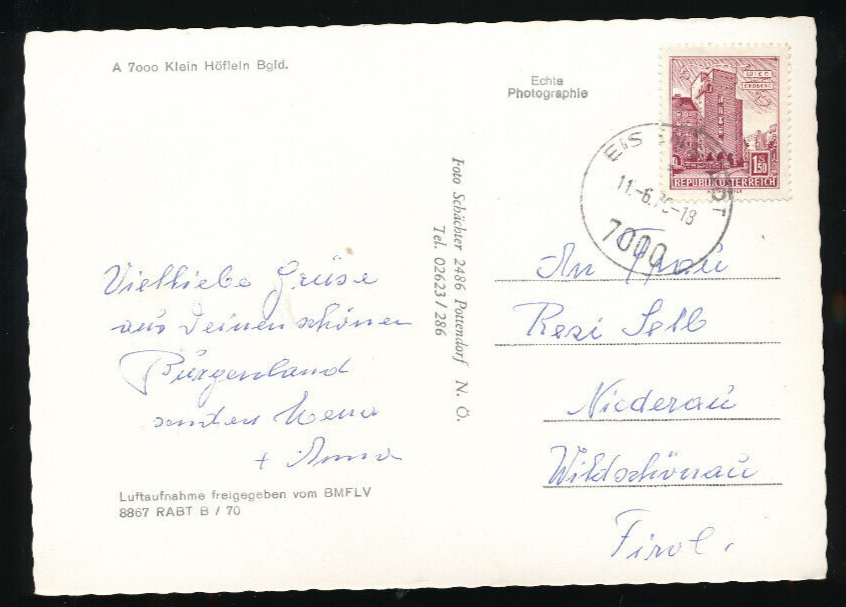 A 7000 Klein Höflein Bgld.
Echte
Photographie
WIEN
ERDBERG
1.50
REPUBLIK ÖSTERREICH
EIS
11.-6.
-18
7000
Foto Schächter 2486 Pottendorf N. Ö.
Tel. 02623/286
Vielliebe Grüse
aus Deinen schönen
Burgenland
senden
+ Anna
Luftaufnahme freigegeben vom BMFLV
8867 RABT B / 70
An Frau
Resi Selb
Niederau
Wildschönau
Tirol.